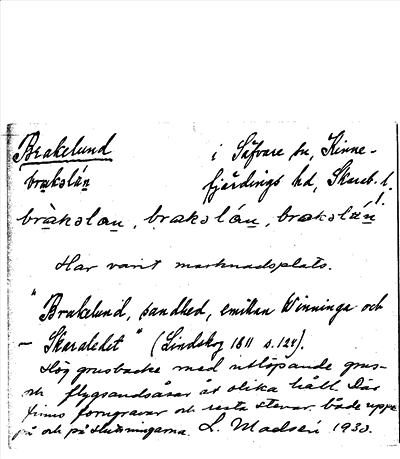 Brakelund i Säfvare sn, Kinne-
brakəlán fjärdings hd, Skarab. l.
bràkəlan, brakəlán, brakəlán!
Har varit marknadsplats.
"Brakelund, sandhed, emillan Winninga och
- Skaraledet" (Lindskog 1811 s.128).
Hög grusbacke med utlöpande grus-
och flygsandsåsar åt olika håll. Där
finns forngravar och resta stenar både uppe
på och på sluttningarna. L. Madsén 1930.